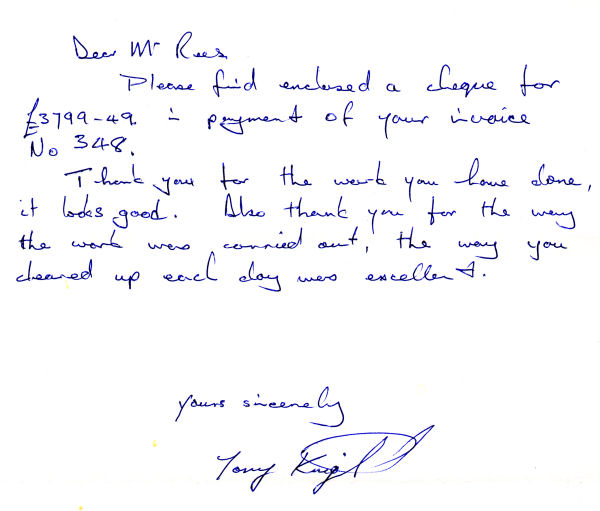 Dear Mr Rees
Please find enclosed a cheque for
£3799-49 in payment of your invoice
No 348.
Thank you for the work you have done,
it looks good. Also thank you for the way
the work was carried out, the way you
cleared up each day was excellent.
yours sincerely
Tony Knight